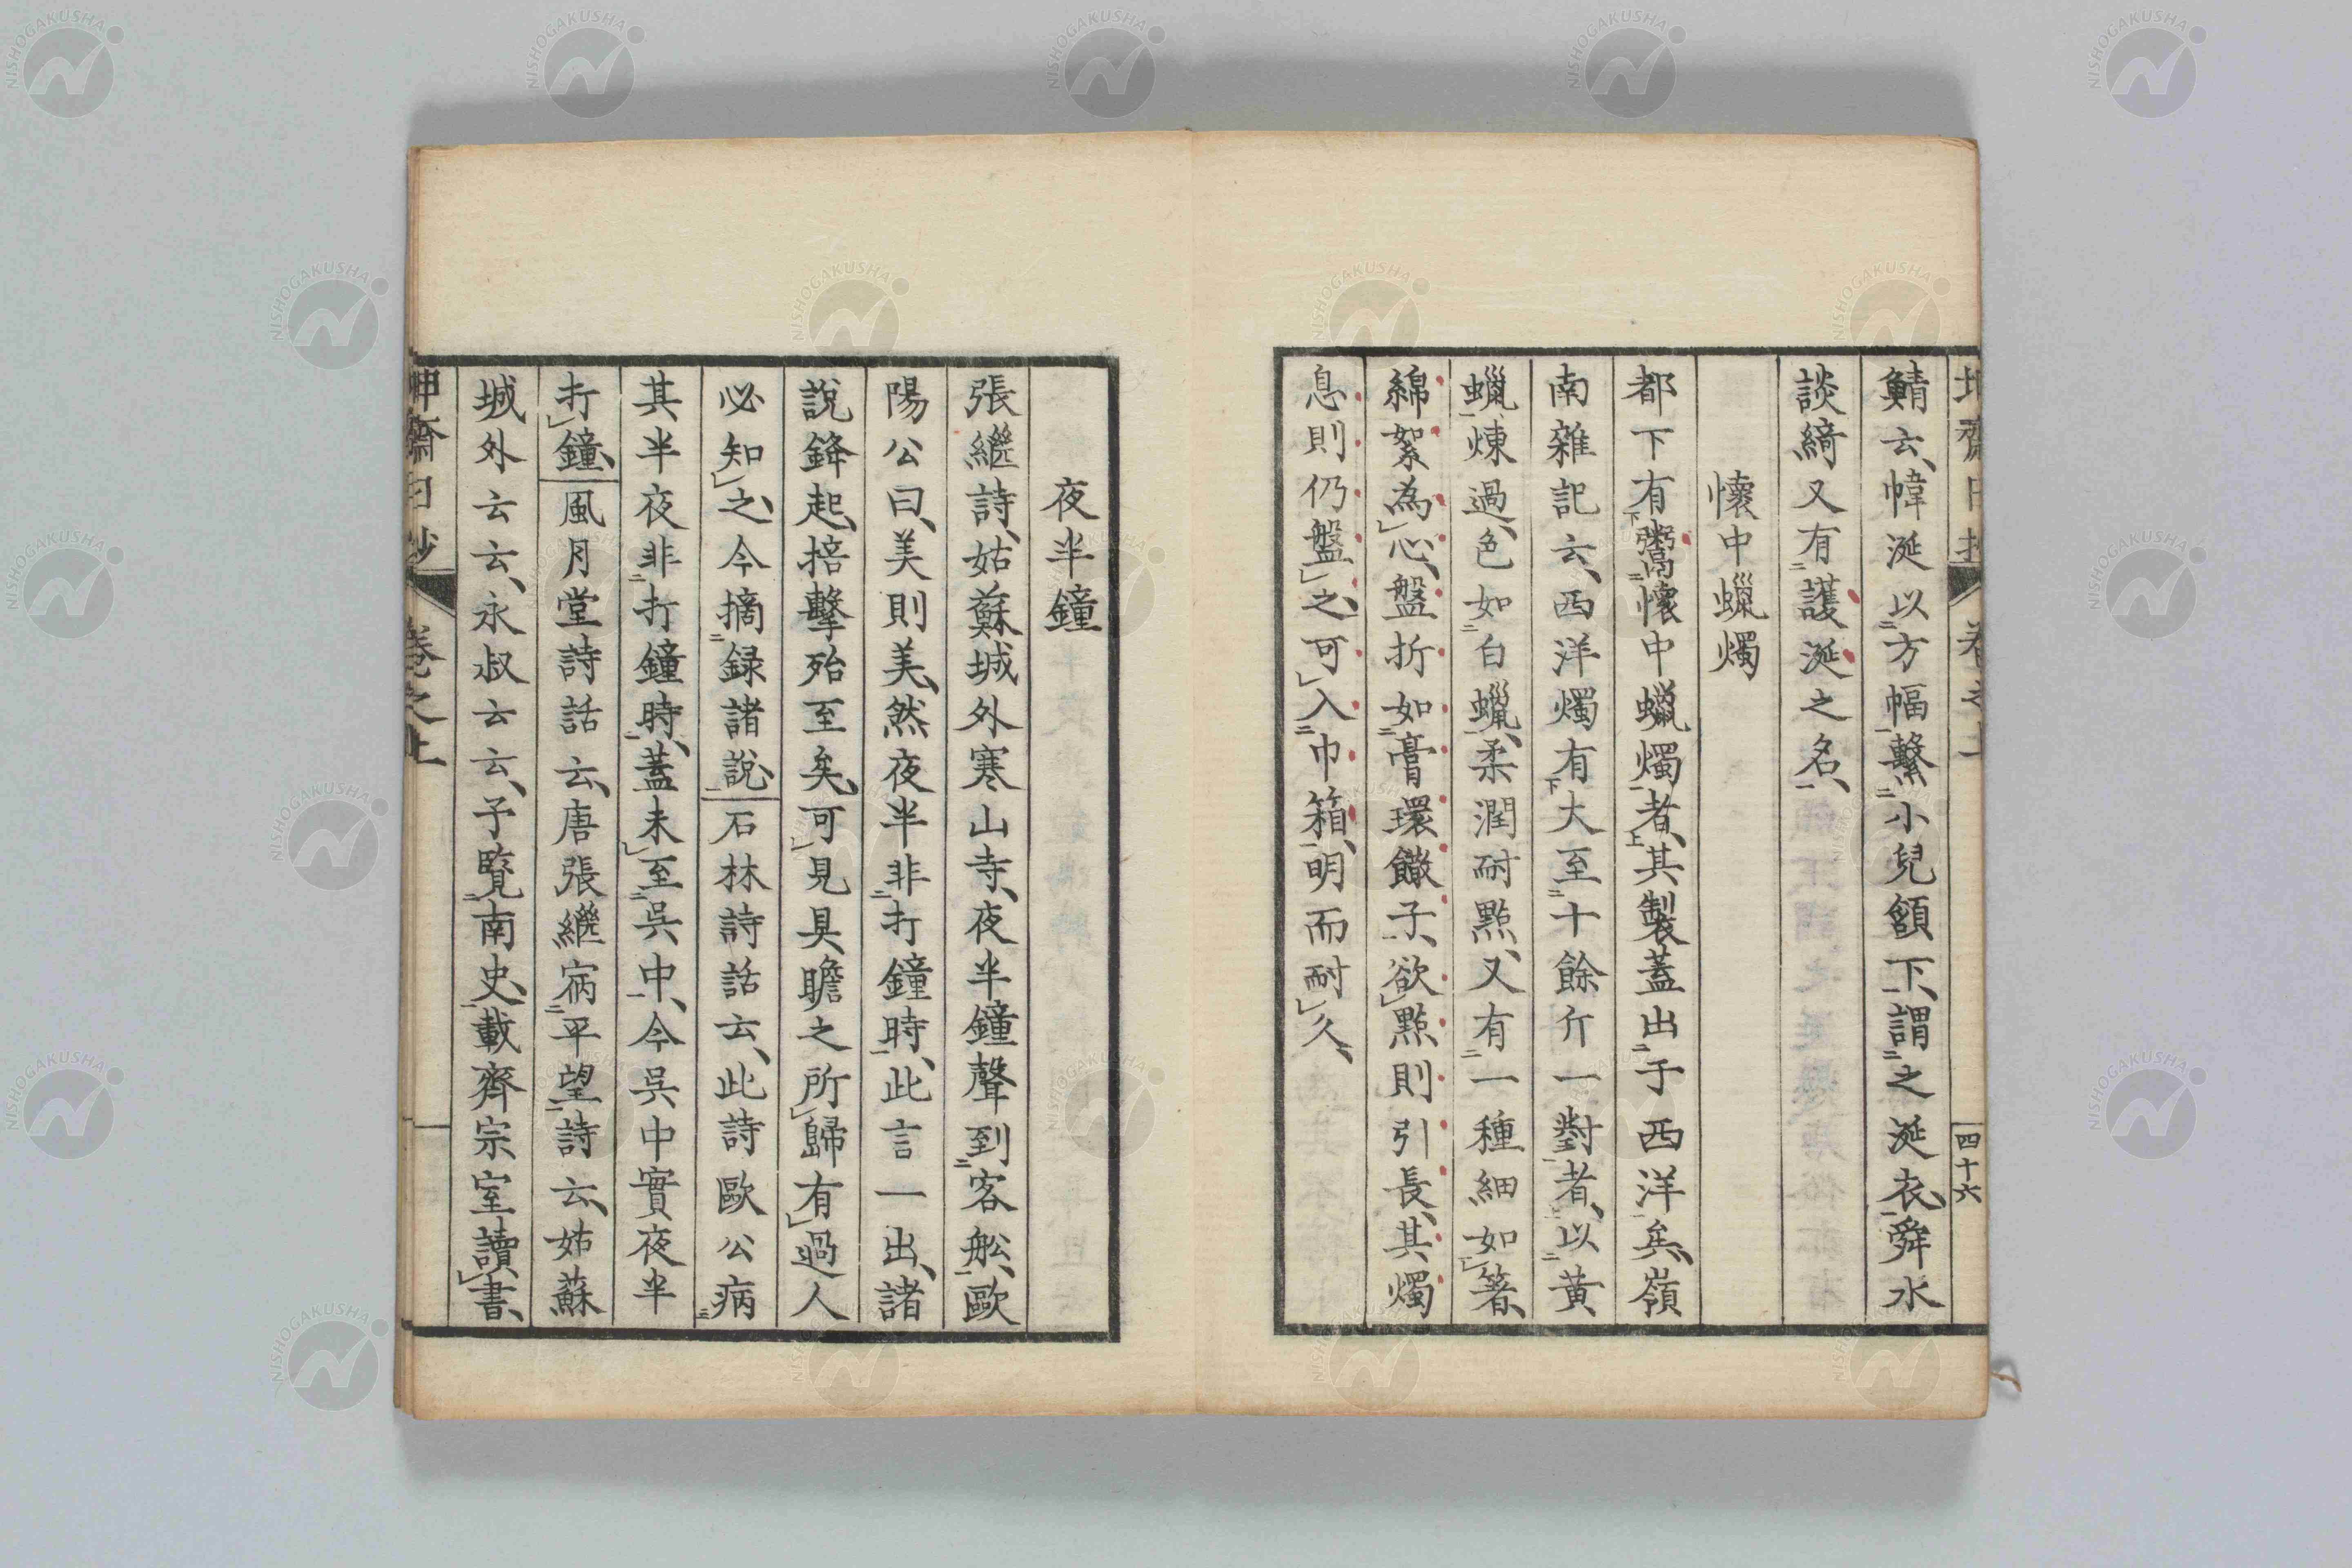 鯖云、幃涎以方幅繫小兒額下、謂之涎衣、舜水
談綺又有護涎之名、
懷中蠟燭
都下有鬻懷中蠟燭者、其製蓋出于西洋矣、嶺
南雜記云、西洋燭有大至十餘斤一對者、以黃
蠟煉過、色如白蠟、柔潤耐點、又有一種細如箸、
綿絮為心、盤折如膏環饊子、欲點則引長、其燭
息則仍盤之、可入巾箱、明而耐久、
四十六
夜半鐘
張繼詩、姑蘇城外寒山寺、夜半鐘聲到客舩、歐
陽公曰、美則美、然夜半非打鐘時、此言一出、諸
說鋒起、掊擊殆至矣、可見具瞻之所歸有過人
必知之、今摘録諸說、石林詩話云、此詩歐公病
其半夜非打鐘時、蓋未至吳中、今吳中實夜半
打鐘、風月堂詩話云、唐張繼宿平望詩云、姑蘇
城外云云、永叔云云、予覽南史、載齊宗室讀書、
卷之上